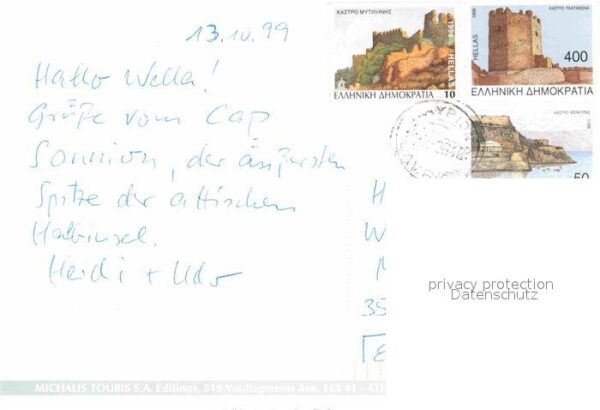 13.10.99
Hallo Wella!
Grüße vom Cap
Sounion, der äußersten
Spitze der attischen
Halbinsel.
Heidi + Udo
ΚΑΣΤΡΟ ΜΥΤΙΛΗΝΗΣ
1996 HELLAS
10
ΕΛΛΗΝΙΚΗ ΔΗΜΟΚΡΑΤΙΑ
ΚΑΣΤΡΟ ΠΛΑΤΑΜΩΝΑ
HELLAS
400
ΕΛΛΗΝΙΚΗ ΔΗΜΟΚΡΑΤΙΑ
ΚΑΣΤΡΟ ΚΕΡΚΥΡΑΣ
50
H
W
35
privacy protection
Datenschutz
MICHALIS TOUBIS S.A. Editions, 519 Vouliagmenis Ave. 163 41